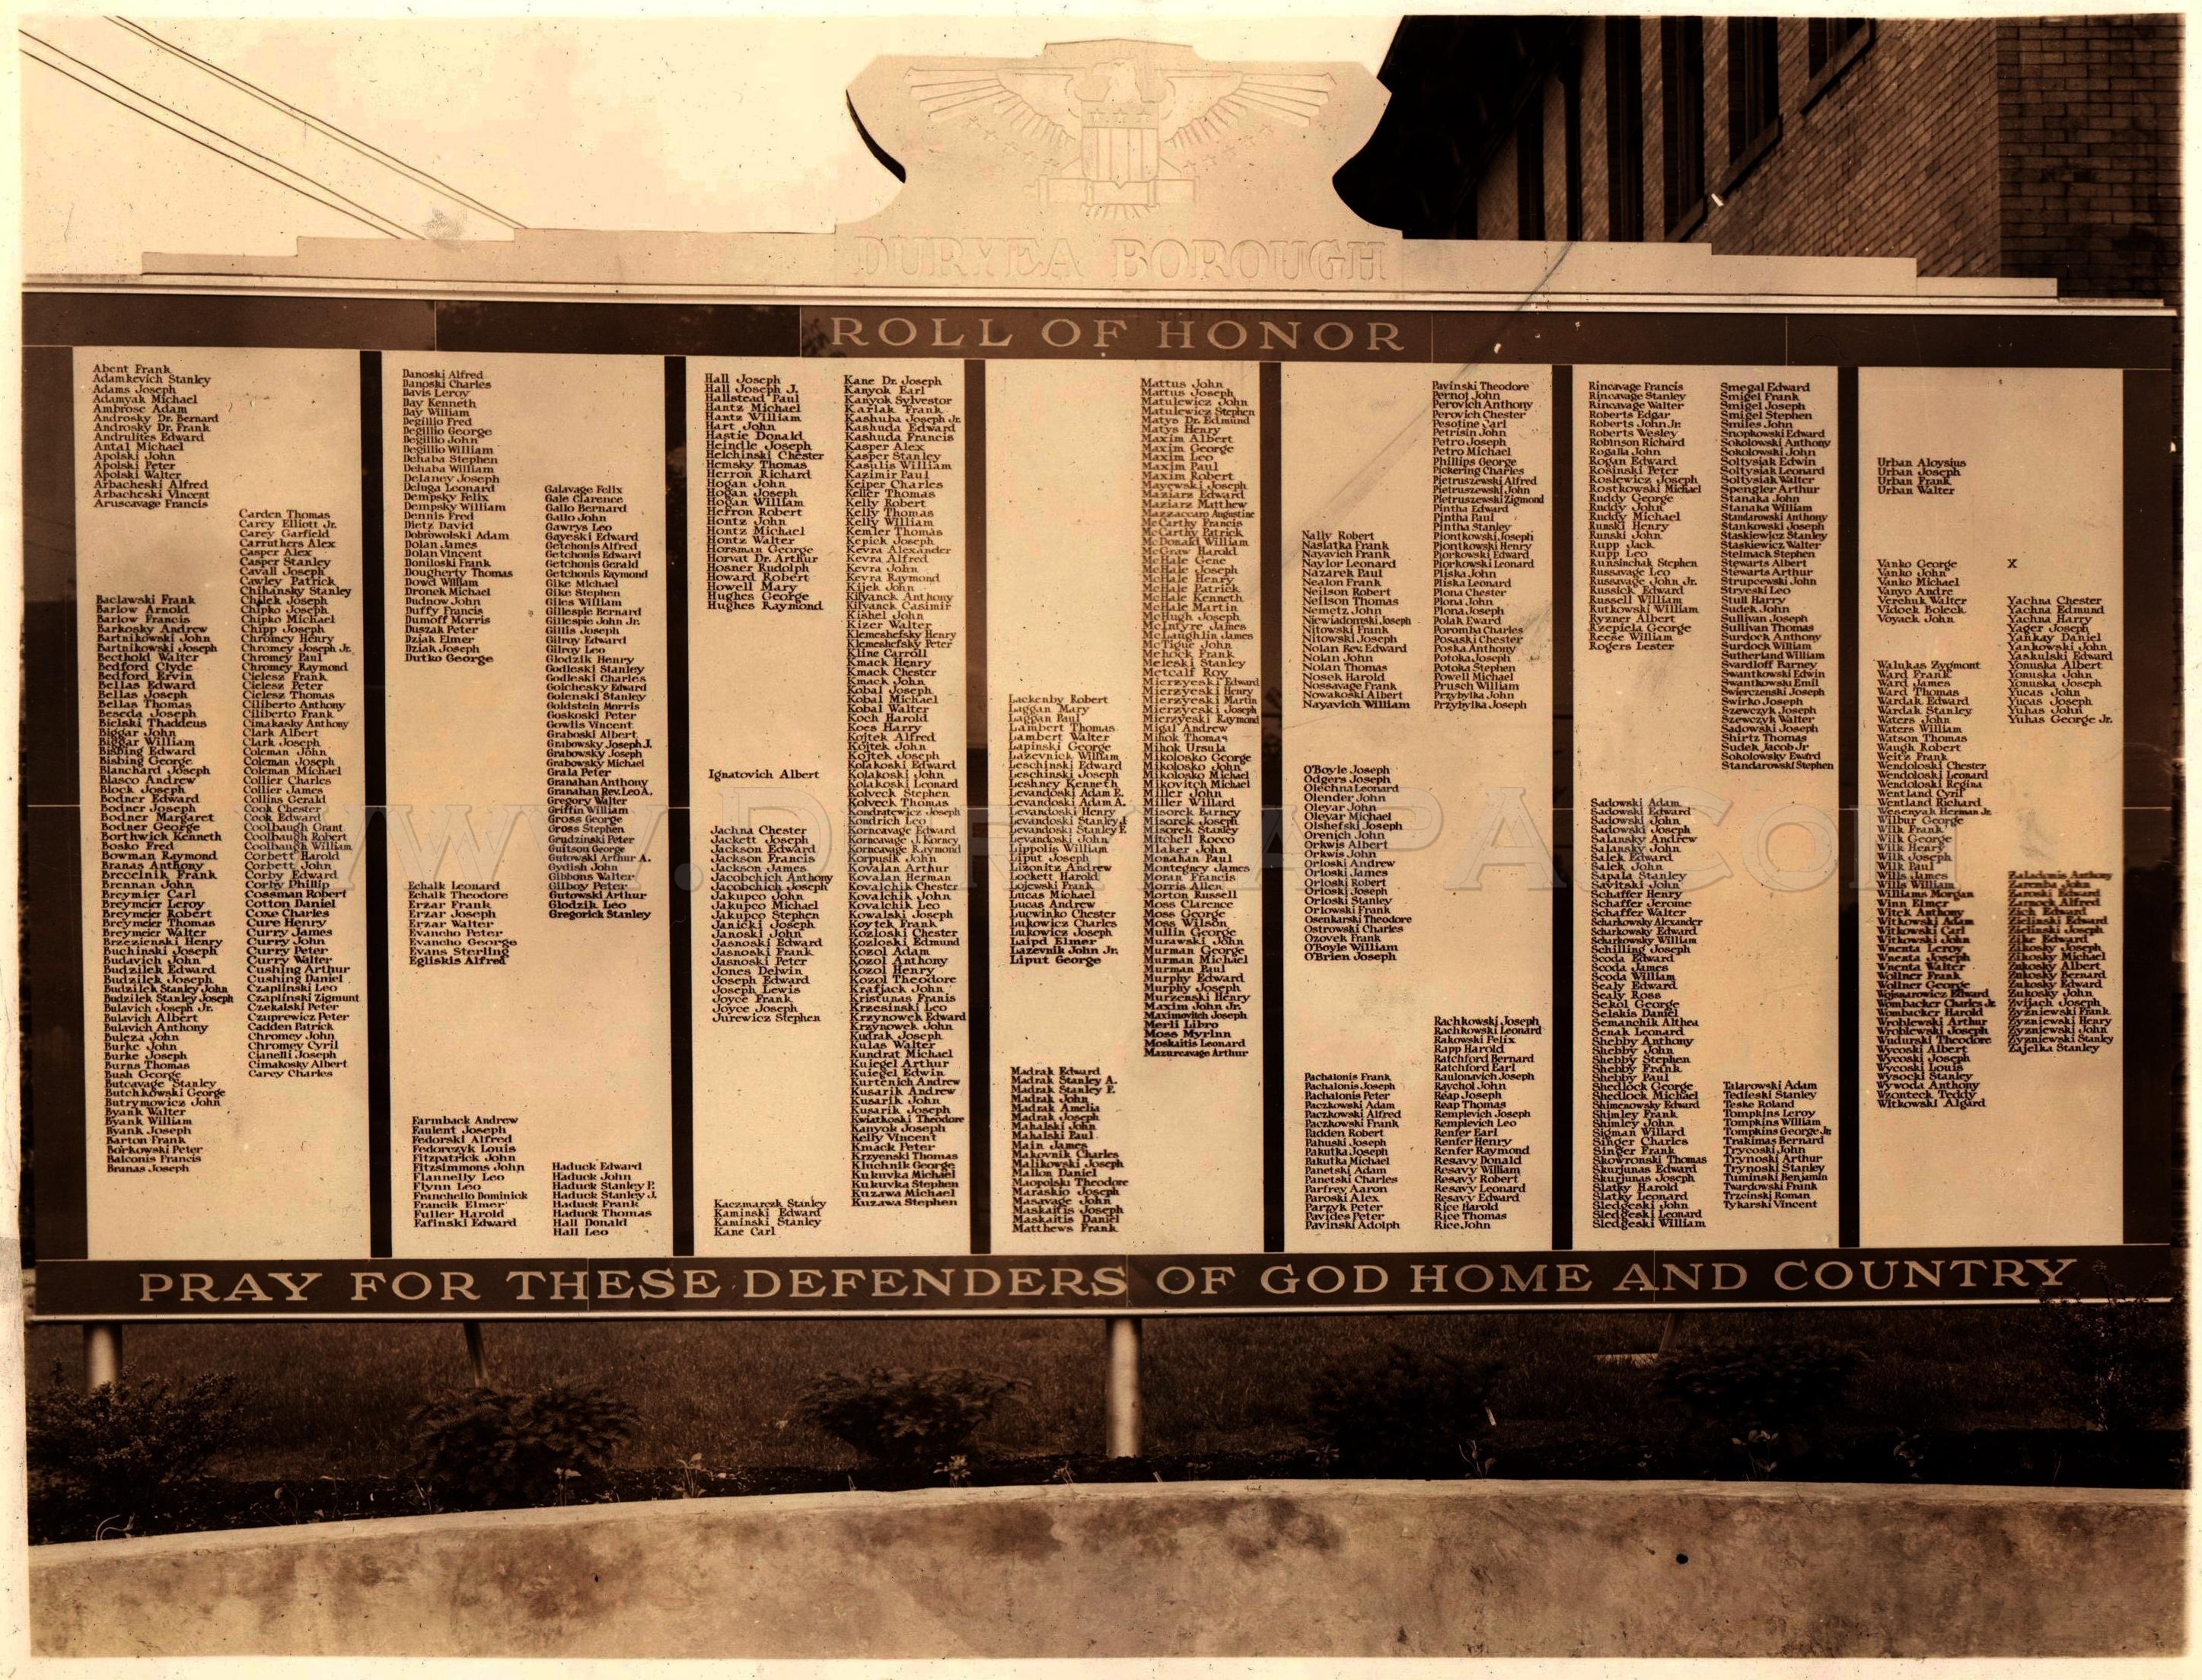 DURYEA BOROUGH
ROLL OF HONOR
Abent Frank
Adamkevich Stanley
Adams Joseph
Adamyak Michael
Ambrose Adam
Androsky Dr. Bernard
Androsky Dr. Frank
Andrulites Edward
Antal Michael
Apolski John
Apolski Peter
Apolski Walter
Arbacheski Alfred
Arbacheski Vincent
Aruscavage Francis
Baclawski Frank
Barlow Arnold
Barlow Francis
Barkosky Andrew
Bartnikowski John
Bartnikowski Joseph
Becthold Walter
Bedford Clyde
Bedford Ervin
Bellas Edward
Bellas Joseph
Bellas Thomas
Beseda Joseph
Bielski Thaddeus
Biggar John
Biggar William
Bisbing Edward
Bisbing George
Blanchard Joseph
Blasco Andrew
Block Joseph
Bodner Edward
Bodner Joseph
Bodner Margaret
Bodner George
Borthwick Kenneth
Bosko Fred
Bowman Raymond
Branas Anthony
Brecelnik Frank
Brennan John
Breymier Carl
Breymeier Leroy
Breymeier Robert
Breymeier Thomas
Breymeier Walter
Brzezienski Henry
Buchinski Joseph
Budavich John
Budzilek Edward
Budzilek Joseph
Budzilek Stanley John
Budzilek Stanley Joseph
Bulavich Joseph Jr.
Bulavich Albert
Bulavich Anthony
Buleza John
Burke John
Burke Joseph
Burns Thomas
Bush George
Butcavage Stanley
Butchkowski George
Butrymowicz John
Byank Walter
Byank William
Byank Joseph
Barton Frank
Borkowski Peter
Balconis Francis
Branas Joseph
Carden Thomas
Carey Elliott Jr.
Carey Garfield
Carruthers Alex
Casper Alex
Casper Stanley
Cavall Joseph
Cawley Patrick
Chihansky Stanley
Chilek Joseph
Chipko Joseph
Chipko Michael
Chipp Joseph
Chromey Henry
Chromey Joseph Jr.
Chromey Paul
Chromey Raymond
Cielesz Frank
Cielesz Peter
Cielesz Thomas
Ciliberto Anthony
Ciliberto Frank
Cimakasky Anthony
Clark Albert
Clark Joseph
Coleman John
Coleman Joseph
Coleman Michael
Collier Charles
Collier James
Collins Gerald
Cook Chester
Cook Edward
Coolbaugh Grant
Coolbaugh Robert
Coolbaugh William
Corbett Harold
Corbett John
Corby Edward
Corby Phillip
Cossman Robert
Cotton Daniel
Coxe Charles
Cure Henry
Curry James
Curry John
Curry Peter
Curry Walter
Cushing Arthur
Cushing Daniel
Czaplinski Leo
Czaplinski Zigmunt
Czekalski Peter
Czuprewicz Peter
Cadden Patrick
Chromey John
Chromey Cyril
Cianelli Joseph
Cimakosky Albert
Carey Charles
Danoski Alfred
Danoski Charles
Davis Leroy
Day Kenneth
Day William
Degillio Fred
Degillio George
Degillio John
Degillio William
Dehaba Stephen
Dehaba William
Delaney Joseph
Deluga Leonard
Dempsky Felix
Dempsky William
Dennis Fred
Dietz David
Dobrowolski Adam
Dolan James
Dolan Vincent
Doniloski Frank
Dougherty Thomas
Dowd William
Dronek Michael
Dudnow John
Duffy Francis
Dumoff Morris
Duszak Peter
Dziak Elmer
Dziak Joseph
Dutko George
Echalk Leonard
Echalk Theodore
Erzar Frank
Erzar Joseph
Erzar Walter
Evancho Peter
Evancho George
Evans Sterling
Egliskis Alfred
Farmback Andrew
Faulent Joseph
Fedorski Alfred
Fedorczyk Louis
Fitzpatrick John
Fitzsimmons John
Flannelly Leo
Flynn Leo
Franchello Dominick
Francik Elmer
Fuller Harold
Fafinski Edward
Galavage Felix
Gale Clarence
Gallo Bernard
Gallo John
Gawrys Leo
Gayeski Edward
Getchonis Alfred
Getchonis Edward
Getchonis Gerald
Getchonis Raymond
Gike Michael
Gike Stephen
Giles William
Gillespie Bernard
Gillespie John Jr.
Gillis Joseph
Gilroy Edward
Gilroy Leo
Glodzik Henry
Godleski Stanley
Godleski Charles
Golchesky Edward
Golenski Stanley
Goldstein Morris
Goskoski Peter
Gowlis Vincent
Graboski Albert
Grabowsky Joseph J.
Grabowsky Joseph
Grabowsky Michael
Grala Peter
Granahan Anthony
Granahan Rev. Leo A.
Gregory Walter
Griffin William
Gross George
Gross Stephen
Grudzinski Peter
Guitson George
Gutowski Arthur A.
Gydish John
Gibbons Walter
Gillboy Peter
Gutowski Arthur
Glodzik Leo
Gregorick Stanley
Haduck Edward
Haduck John
Haduck Stanley P.
Haduck Stanley J.
Haduck Frank
Haduck Thomas
Hall Donald
Hall Leo
Hall Joseph
Hall Joseph J.
Hallstead Paul
Hantz Michael
Hantz William
Hart John
Hastie Donald
Heindle Joseph
Helchinski Chester
Hemsky Thomas
Herron Richard
Hogan John
Hogan Joseph
Hogan William
Hefron Robert
Hontz John
Hontz Michael
Hontz Walter
Horsman George
Horvat Dr. Arthur
Hosner Rudolph
Howard Robert
Howell Mary
Hughes George
Hughes Raymond
Ignatovich Albert
Jachna Chester
Jackett Joseph
Jackson Edward
Jackson Francis
Jackson James
Jacobchich Anthony
Jacobchich Joseph
Jakupco John
Jakupco Michael
Jakupco Stephen
Janicki Joseph
Janoski John
Jasnoski Edward
Jasnoski Frank
Jasnoski Peter
Jones Delwin
Joseph Edward
Joseph Lewis
Joyce Frank
Joyce Joseph
Jurewicz Stephen
Kaczmarczk Stanley
Kaminski Edward
Kaminski Stanley
Kane Carl
Kane Dr. Joseph
Kanyok Earl
Kanyok Sylvestor
Karlak Frank
Kashuba Joseph Jr.
Kashuda Edward
Kashuda Francis
Kasper Alex
Kasper Stanley
Kasulis William
Kazimir Paul
Keiper Charles
Keller Thomas
Kelly Robert
Kelly Thomas
Kelly William
Kemler Thomas
Kepick Joseph
Kevra Alexander
Kevra Alfred
Kevra John
Kevra Raymond
Kijek John
Kilyanck Anthony
Kilyanck Casimir
Kishel John
Kizer Walter
Klemeshefsky Henry
Klemeshefsky Peter
Kline Carroll
Kmack Henry
Kmack Chester
Kmack John
Kobal Joseph
Kobal Michael
Kobal Walter
Koch Harold
Koes Harry
Kojtek Alfred
Kojtek John
Kojtek Joseph
Kolakoski Edward
Kolakoski John
Kolakoski Leonard
Kolveck Stephen
Kolveck Thomas
Kondratewicz Joseph
Kondrich Leo
Korncavage Edward
Korncavage J. Korney
Korncavage Raymond
Korpusik John
Kovalan Arthur
Kovalan Herman
Kovalchik Chester
Kovalchik John
Kovalchik Leo
Kowalski Joseph
Koytek Frank
Kozloski Chester
Kozloski Edmund
Kozol Adam
Kozol Anthony
Kozol Henry
Kozol Theodore
Krafjack John
Kristunas Franis
Krzesinski Leo
Krzynowek Edward
Krzynowek John
Kudrak Joseph
Kulas Walter
Kundrat Michael
Kuiegel Arthur
Kuiegel Edwin
Kurtenich Andrew
Kusarik Andrew
Kusarik John
Kusarik Joseph
Kwiatkoski Theodore
Kanyok Joseph
Kelly Vincent
Kmack Peter
Krzyenski Thomas
Kluchnik George
Kukuvka Michael
Kukuvka Stephen
Kuzawa Michael
Kuzawa Stephen
Lackenby Robert
Laggan Mary
Laggan Paul
Lambert Thomas
Lambert Walter
Lapinski George
Lazevnick William
Leschinski Edward
Leschinski Joseph
Leshney Kenneth
Levandoski Adam E.
Levandoski Adam A.
Levandoski Henry
Levandoski Stanley J.
Levandoski Stanley F.
Levandoski John
Lippolis William
Liput Joseph
Lizonitz Andrew
Lockett Harold
Lojewski Frank
Lucas Michael
Lucas Andrew
Lucwinko Chester
Lukowicz Charles
Lukowicz Joseph
Laipd Elmer
Lazevnik John Jr.
Liput George
Madrak Edward
Madrak Stanley A.
Madrak Stanley F.
Madrak John
Madrak Amelia
Madrak Joseph
Mahalski John
Mahalski Paul
Main James
Makovnik Charles
Malikowski Joseph
Mallon Daniel
Maopolski Theodore
Maraskio Joseph
Masavage John
Maskaitis Joseph
Maskaitis Daniel
Matthews Frank
Mattus John
Mattus Joseph
Matulewicz John
Matulewicz Stephen
Matys Dr. Edmund
Matys Henry
Maxim Albert
Maxim George
Maxim Leo
Maxim Paul
Maxim Robert
Mayewski Joseph
Maziarz Edward
Maziarz Matthew
Mazzaccaro Augustine
McCarthy Francis
McCarthy Patrick
McDonald William
McGraw Harold
McHale Gene
McHale Joseph
McHale Henry
McHale Patrick
McHale Kenneth
McHale Martin
McHugh Joseph
McIntyre James
McLaughlin James
McTigue John
Mehock Frank
Meleski Stanley
Metcalf Roy
Mierzyeski Edward
Mierzyeski Henry
Mierzyeski Martin
Mierzyeski Joseph
Mierzyeski Raymond
Migal Andrew
Mihok Thomas
Mihok Ursula
Mikolosko George
Mikolosko John
Mikolosko Michael
Mikovitch Michael
Miller John
Miller Willard
Misorek Barney
Misorek Joseph
Misorek Stanley
Mitchell Rocco
Mlaker John
Monahan Paul
Montegney James
Moran Francis
Morris Allen
Morton Russell
Moss Clarence
Moss George
Moss Wilson
Mullin George
Murawski John
Murman George
Murman Michael
Murman Paul
Murphy Edward
Murphy Joseph
Murzenski Henry
Maxim John Jr.
Maximovitch Joseph
Merli Libro
Moss Myrlnn
Moskaitis Leonard
Mazurcavage Arthur
Nally Robert
Naslatka Frank
Nayavich Frank
Naylor Leonard
Nazarek Paul
Nealon Frank
Neilson Robert
Neilson Thomas
Nemetz John
Niewiadomski Joseph
Nitowski Frank
Nitowski Joseph
Nolan Rev. Edward
Nolan John
Nolan Thomas
Nosek Harold
Nossavage Frank
Nowakoski Albert
Nayavich William
O'Boyle Joseph
Odgers Joseph
Olechna Leonard
Olender John
Oleyar John
Oleyar Michael
Olshefski Joseph
Orenich John
Orkwis Albert
Orkwis John
Orloski Andrew
Orloski James
Orloski Robert
Orloski Joseph
Orloski Stanley
Orlowski Frank
Osenkarski Theodore
Ostrowski Charles
Ozovek Frank
O'Boyle William
O'Brien Joseph
Pachalonis Frank
Pachalonis Joseph
Pachalonis Peter
Paczkowski Adam
Paczkowski Alfred
Paczkowski Frank
Padden Robert
Pahuski Joseph
Pakutka Joseph
Pakutka Michael
Panetski Adam
Panetski Charles
Parfrey Aaron
Paroski Alex
Parzyk Peter
Pavides Peter
Pavinski Adolph
Pavinski Theodore
Pernot John
Perovich Anthony
Perovich Chester
Pesotine Carl
Petrisin John
Petro Joseph
Petro Michael
Phillips George
Pickering Charles
Pietruszewski Alfred
Pietruszewski John
Pietruszewski Zigmond
Pintha Edward
Pintha Paul
Pintha Stanley
Piontkowski Joseph
Piontkowski Henry
Piorkowski Edward
Piorkowski Leonard
Pliska John
Pliska Leonard
Plona Chester
Plona John
Plona Joseph
Polak Eward
Poromba Charles
Posaski Chester
Poska Anthony
Potoka Joseph
Potoka Stephen
Powell Michael
Prusch William
Przybylka John
Przybylka Joseph
Rachkowski Joseph
Rachkowski Leonard
Rakowski Felix
Rapp Harold
Ratchford Bernard
Ratchford Earl
Raulonavich Joseph
Raychol John
Reap Joseph
Reap Thomas
Remplevich Joseph
Remplevich Leo
Renfer Earl
Renfer Henry
Renfer Raymond
Resavy Donald
Resavy William
Resavy Robert
Resavy Leonard
Resavy Edward
Rice Harold
Rice Thomas
Rice John
Rincavage Francis
Rincavage Stanley
Rincavage Walter
Roberts Edgar
Roberts John Jr.
Roberts Wesley
Robinson Richard
Rogalla John
Rogan Edward
Rosinski Peter
Roslewicz Joseph
Rostkowski Michael
Ruddy George
Ruddy John
Ruddy Michael
Runski Henry
Runski John
Rupp Jack
Rupp Leo
Runsinchak Stephen
Russavage Leo
Russavage John Jr.
Russick Edward
Russell William
Rutkowski William
Ryzner Albert
Rzepiela George
Reese William
Rogers Lester
Sadowski Adam
Sadowski Edward
Sadowski John
Sadowski Joseph
Salansky Andrew
Salansky John
Salek Edward
Salek John
Sapala Stanley
Savitski John
Schaffer Henry
Schaffer Jerome
Schaffer Walter
Scharkowsky Alexander
Scharkowsky Edward
Scharkowsky William
Schilling Joseph
Scoda Edward
Scoda James
Scoda William
Sealy Edward
Sealy Ross
Sekol George
Selskis Daniel
Semanchik Althea
Senak Leonard
Shebby Anthony
Shebby John
Shebby Stephen
Shebby Frank
Shebby Paul
Shedlock George
Shedlock Michael
Shimenowsky Edward
Shimley Frank
Shimley John
Sigman Willard
Singer Charles
Singer Frank
Skowronski Thomas
Skurjunas Edward
Skurjunas Joseph
Slatky Harold
Slatky Leonard
Sledgeski John
Sledgeski Leonard
Sledgeski William
Smegal Edward
Smigel Frank
Smigel Joseph
Smigel Stephen
Smiles John
Snopkowski Edward
Sokolowski Anthony
Sokolowski John
Soltysiak Edwin
Soltysiak Leonard
Soltysiak Walter
Spengler Arthur
Stanaka John
Stanaka William
Standarowski Anthony
Stankowski Joseph
Staskiewicz Stanley
Staskiewicz Walter
Stelmack Stephen
Stewarts Albert
Stewarts Arthur
Strupcewski John
Stryeski Leo
Stull Harry
Sudek John
Sullivan Joseph
Sullivan Thomas
Surdock Anthony
Surdock William
Sutherland William
Svardloff Barney
Swantkowski Edwin
Swantkowski Emil
Swierczenski Joseph
Swirko Joseph
Szewczyk Joseph
Szewczyk Walter
Sadowski Joseph
Shirtz Thomas
Sudek Jacob Jr
Sokolowsky Eward
Standarowski Stephen
Talarowski Adam
Tedleski Stanley
Teske Roland
Tompkins Leroy
Tompkins William
Tompkins George Jr.
Trakimas Bernard
Trycoski John
Trynoski Arthur
Trynoski Stanley
Tuminski Benjamin
Twardowski Frank
Trzcinski Roman
Tykarski Vincent
Urban Aloysius
Urban Joseph
Urban Frank
Urban Walter
Vanko George
Vanko John
Vanko Michael
Vanyo Andre
Verchuk Walter
Vidock Boleck
Voyack John
Walukas Zygmont
Ward Frank
Ward James
Ward Thomas
Wardak Edward
Wardak Stanley
Waters John
Waters William
Watson Thomas
Waugh Robert
Weitz Frank
Wendoloski Chester
Wendoloski Leonard
Wendoloski Regina
Wentland Cyril
Wentland Richard
Wesenyak Herman Jr.
Wilbur George
Wilk Frank
Wilk George
Wilk Henry
Wilk Joseph
Wilk Paul
Wills James
Wills William
Williams Morgan
Winn Elmer
Witek Anthony
Witkowski Adam
Witkowski Carl
Witkowski John
Wnenta Leroy
Wnenta Joseph
Wnenta Walter
Wollner Frank
Wollner George
Wojsnarowicz Edward
Wombacker Charles Jr.
Wombacker Harold
Wroblewski Arthur
Wroblewski Joseph
Wudurski Theodore
Wycoski Albert
Wycoski Joseph
Wycoski Louis
Wysocki Stanley
Wywoda Anthony
Wzonteck Teddy
Witkowski Algard
X
Yachna Chester
Yachna Edmund
Yachna Harry
Yager Joseph
Yankay Daniel
Yankowski John
Yaskulski Edward
Yonuska Albert
Yonuska John
Yonuska Joseph
Yucas John
Yucas Joseph
Yuhas John
Yuhas George Jr.
Zaladonis Anthony
Zaremba John
Zaroski Edward
Zarnock Alfred
Zich Edward
Zielinski Edward
Zielinski Joseph
Zike Edward
Zikosky Joseph
Zikosky Michael
Zukosky Albert
Zukosky Bernard
Zukosky Edward
Zukosky John
Zvijach Joseph
Zyzniewski Frank
Zyzniewski Henry
Zyzniewski John
Zyzniewski Stanley
Zajelka Stanley
PRAY FOR THESE DEFENDERS OF GOD HOME AND COUNTRY
www.DURYEAPA.com